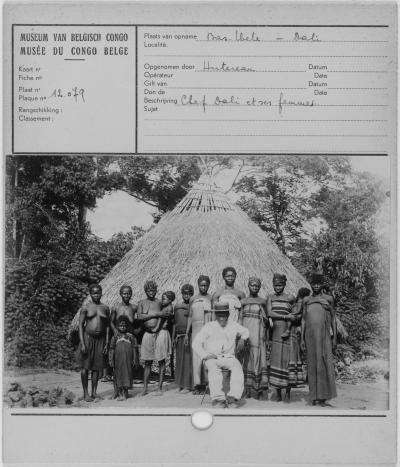 MUSEUM VAN BELGISCH CONGO
MUSÉE DU CONGO BELGE
Kaart nr
Fiche no
Plaat nr
Plaque no 12.079
Rangschikking :
Classement :
Plaats van opname Bas-Uele - Dali
Localité.
Opgenomen door Hutereau Datum
Opérateur Date
Gift van Datum
Don de Date
Beschrijving Chef Dali et ses femmes
Sujet